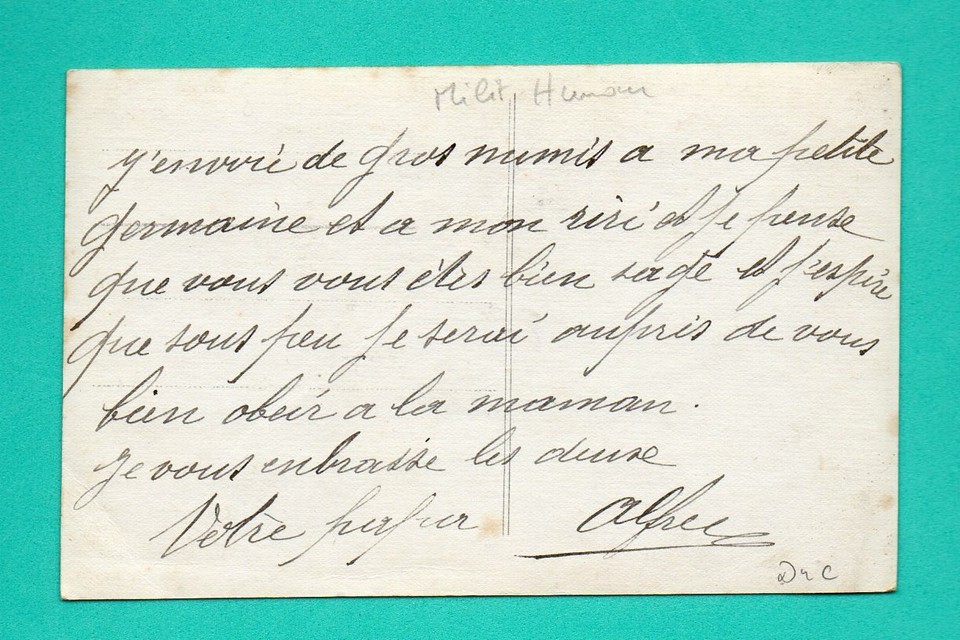 Milit. Humour
j'envoié de gros mimis a ma petite
germaine et a mon riri et je pense
que vous vous étes bien sage et j'espére
que sous peu je serai aupris de vous
bien obeir a la maman.
je vous enbrasse les deuse
Votre papa Alfred
DrC